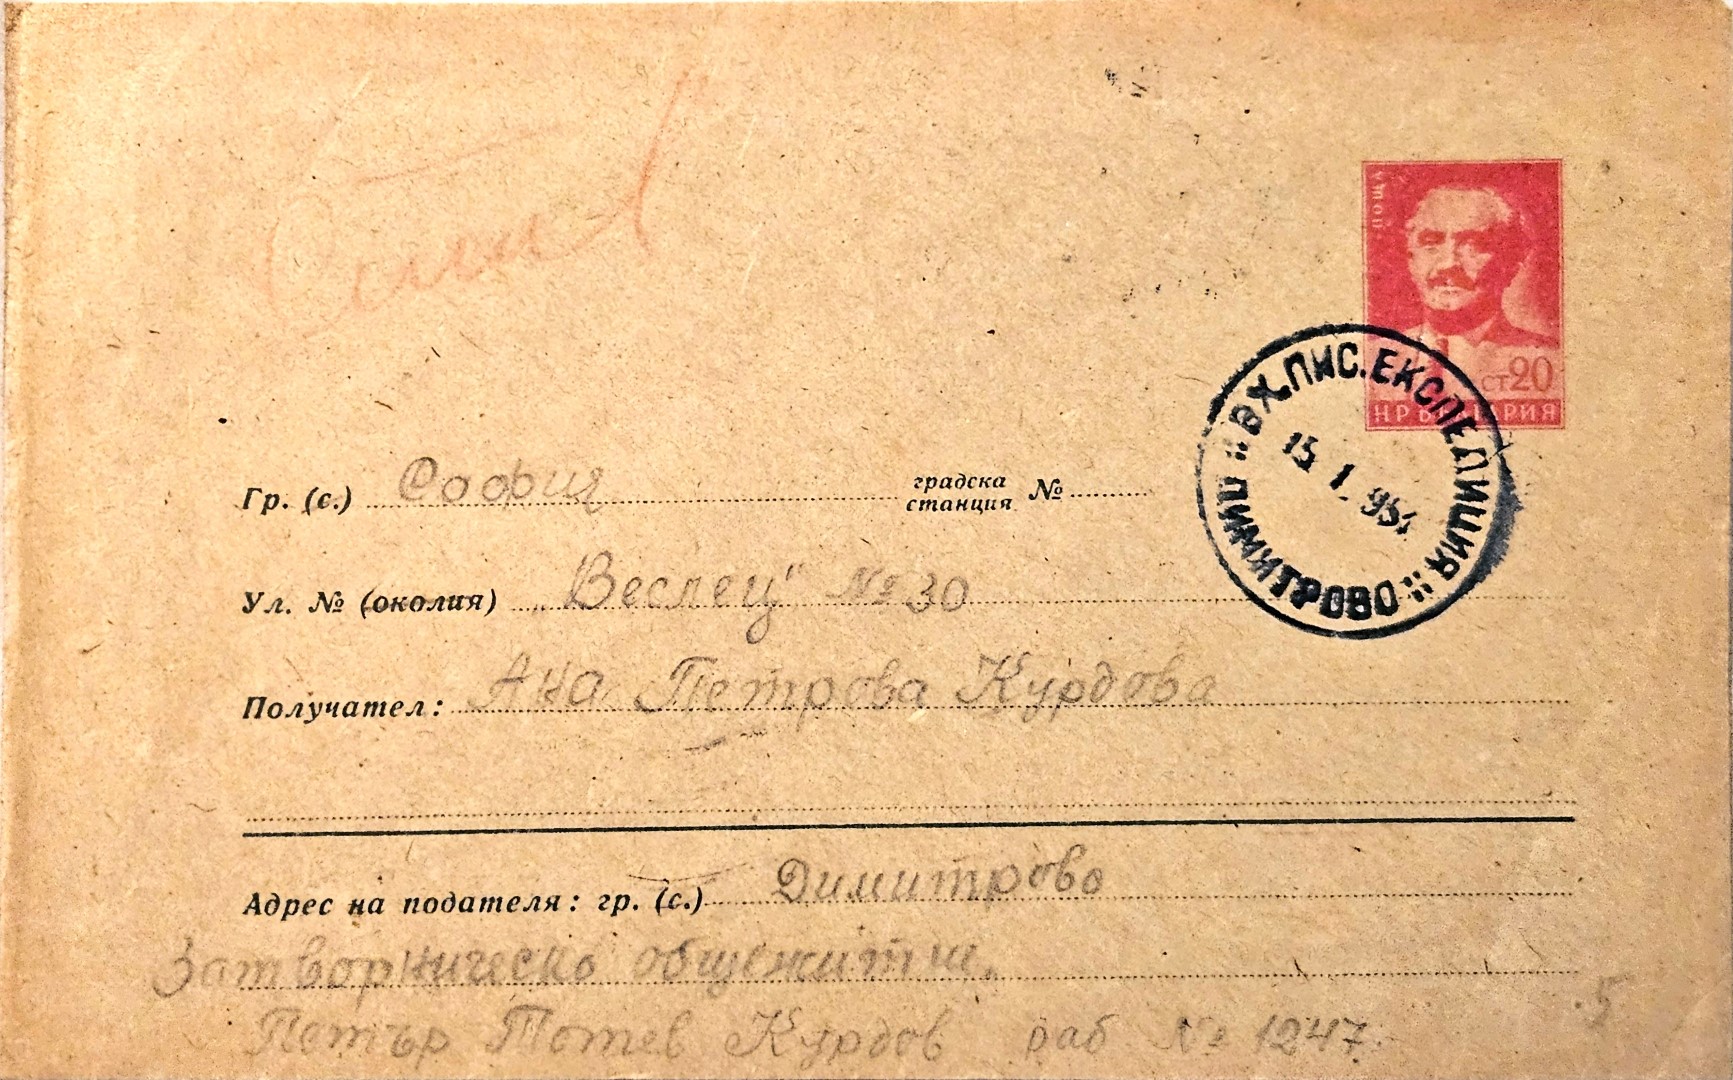 ПОЩА
СТ 20
НР БЪЛГАРИЯ
ВХ. ПИС. ЕКСПЕДИЦИЯ
15 1 954
ДИМИТРОВО
Гр. (с.) София градска станция №
Ул. № (околия) „Веслец" № 30
Получател: Ана Петрова Курдова
Адрес на подателя: гр. (с.) Димитрово
Затворническо общежитие.
Петър Тотев Курдов раб № 1247.
5